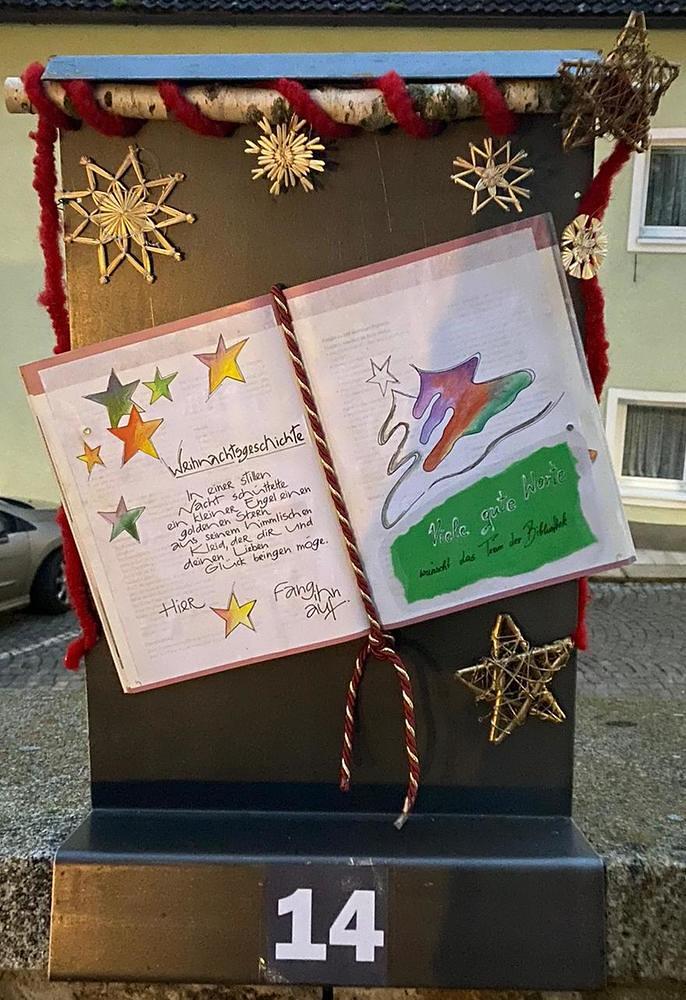 Weihnachtsgeschichte
In einer stillen
Nacht schüttelte
ein kleiner Engel einen
goldenen Stern
aus seinem himmlischen
Kleid, der dir und
deinen Lieben
Glück beingen möge.
Hier
Fang ihn
auf
Viele gute Worte
wünscht das Team der Bibliothek
14